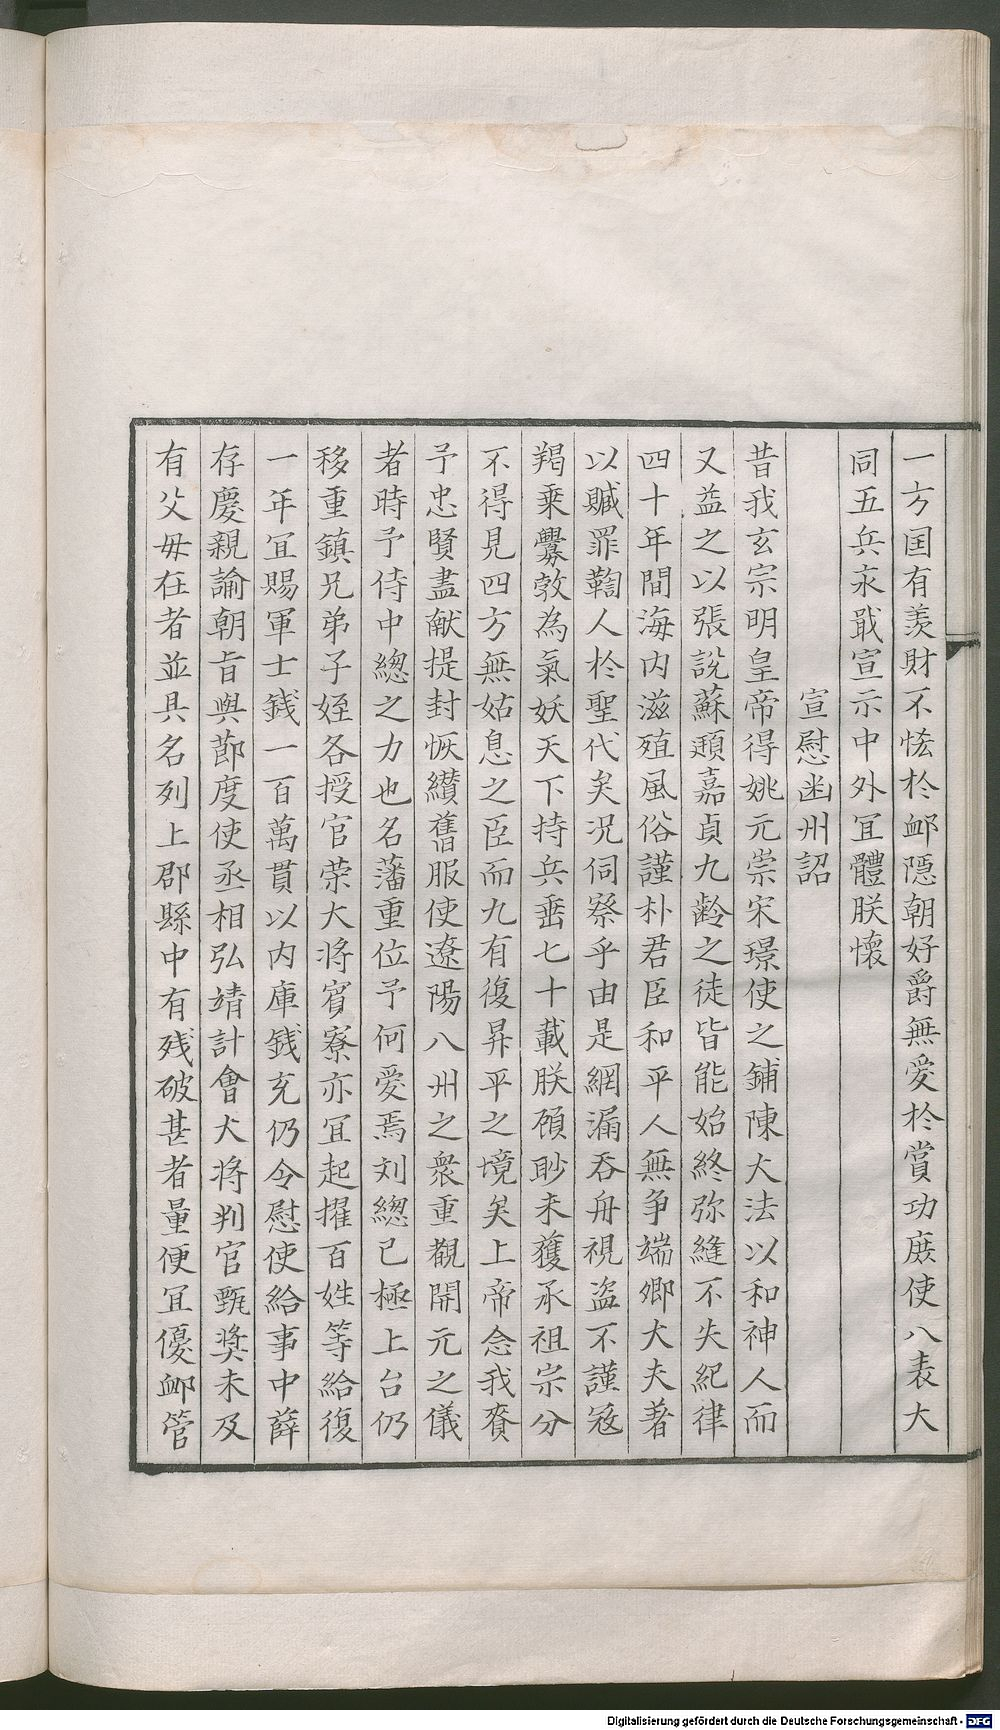 一方囯有羨財不恡於䘏隱朝好爵無愛於賞功庻使八表大
同五兵永戢宣示中外冝體朕懷
宣慰幽州詔
昔我玄宗明皇帝得姚元崇宋璟使之鋪陳大法以和神人而
又益之以張説蘇頲嘉貞九齡之徒皆能始終弥縫不失紀律
四十年間海内滋殖風俗謹朴君臣和平人無争端卿大夫著
以贓罪鞫人於聖代矣况伺察乎由是網漏吞舟視盗不謹冦
羯乗釁敦為氣妖天下持兵埀七十載朕頋眇未獲承祖宗分
不得見四方無姑息之臣而九有復昇平之境矣上帝念我賚
予忠賢盡献提封恢纉舊服使遼陽八州之衆重覩開元之儀
者時予侍中緫之力也名藩重位予何愛焉刘緫已極上台仍
移重鎮兄弟子姪各授官荣大将賓寮亦冝起擢百姓等給復
一年冝賜軍士銭一百萬貫以内庫銭充仍令慰使給事中薛
存慶親諭朝㫖與莭度使丞相弘靖計會大将判官甄奨未及
有父母在者並具名列上郡縣中有残破甚者量便冝優䘏管
Digitalisierung gefördert durch die Deutsche Forschungsgemeinschaft - DFG